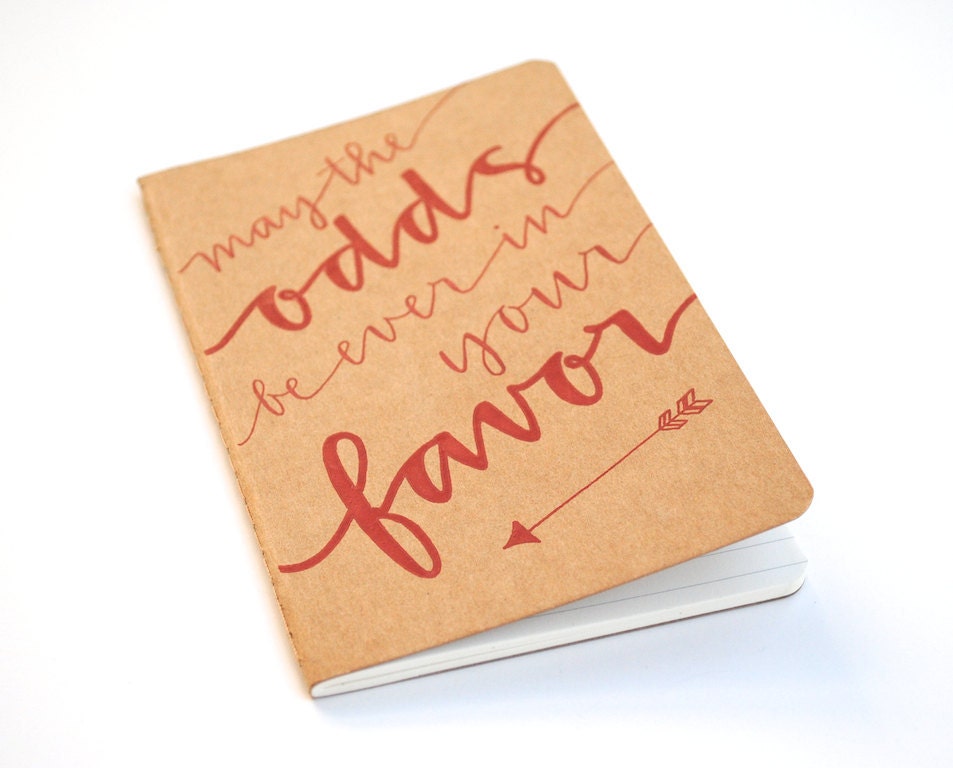 may the
odds
be ever in
your
favor